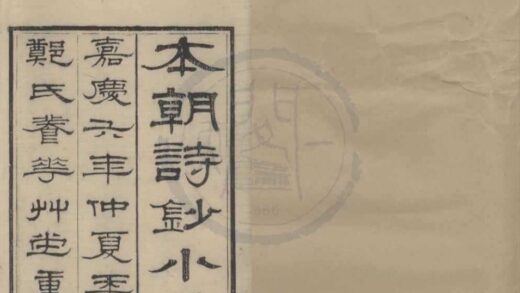 本朝詩鈔小
嘉慶六年仲夏
鄭氏養華艸堂重